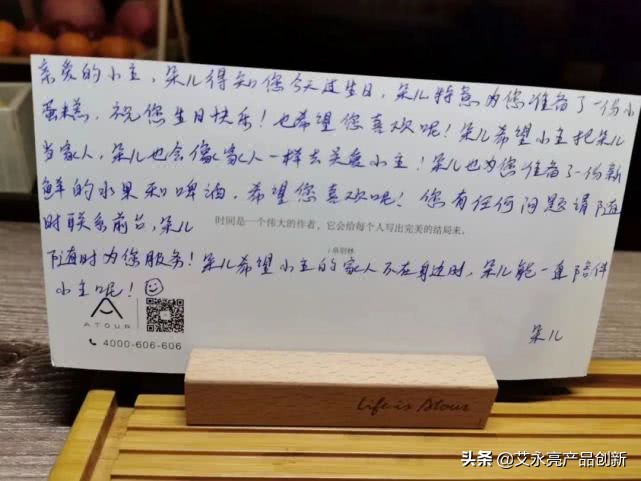 亲爱的小主，朵儿得知您今天过生日，朵儿特意为您准备了一份小
蛋糕，祝您生日快乐！也希望您喜欢呢！朵儿希望小主把朵儿
当家人，朵儿也会像家人一样去关爱小主！朵儿也为您准备了一份新
鲜的水果和啤酒，希望您喜欢呢！您有任何问题请随
时联系前台，朵儿
时间是一个伟大的作者，它会给每个人写出完美的结局来。
卓别林
随时为您服务！朵儿希望小主的家人不在身边时，朵儿能一直陪伴
小主呢！
ATOUR
4000-606-606
朵儿
Life is Atour
头条 @艾永亮产品创新